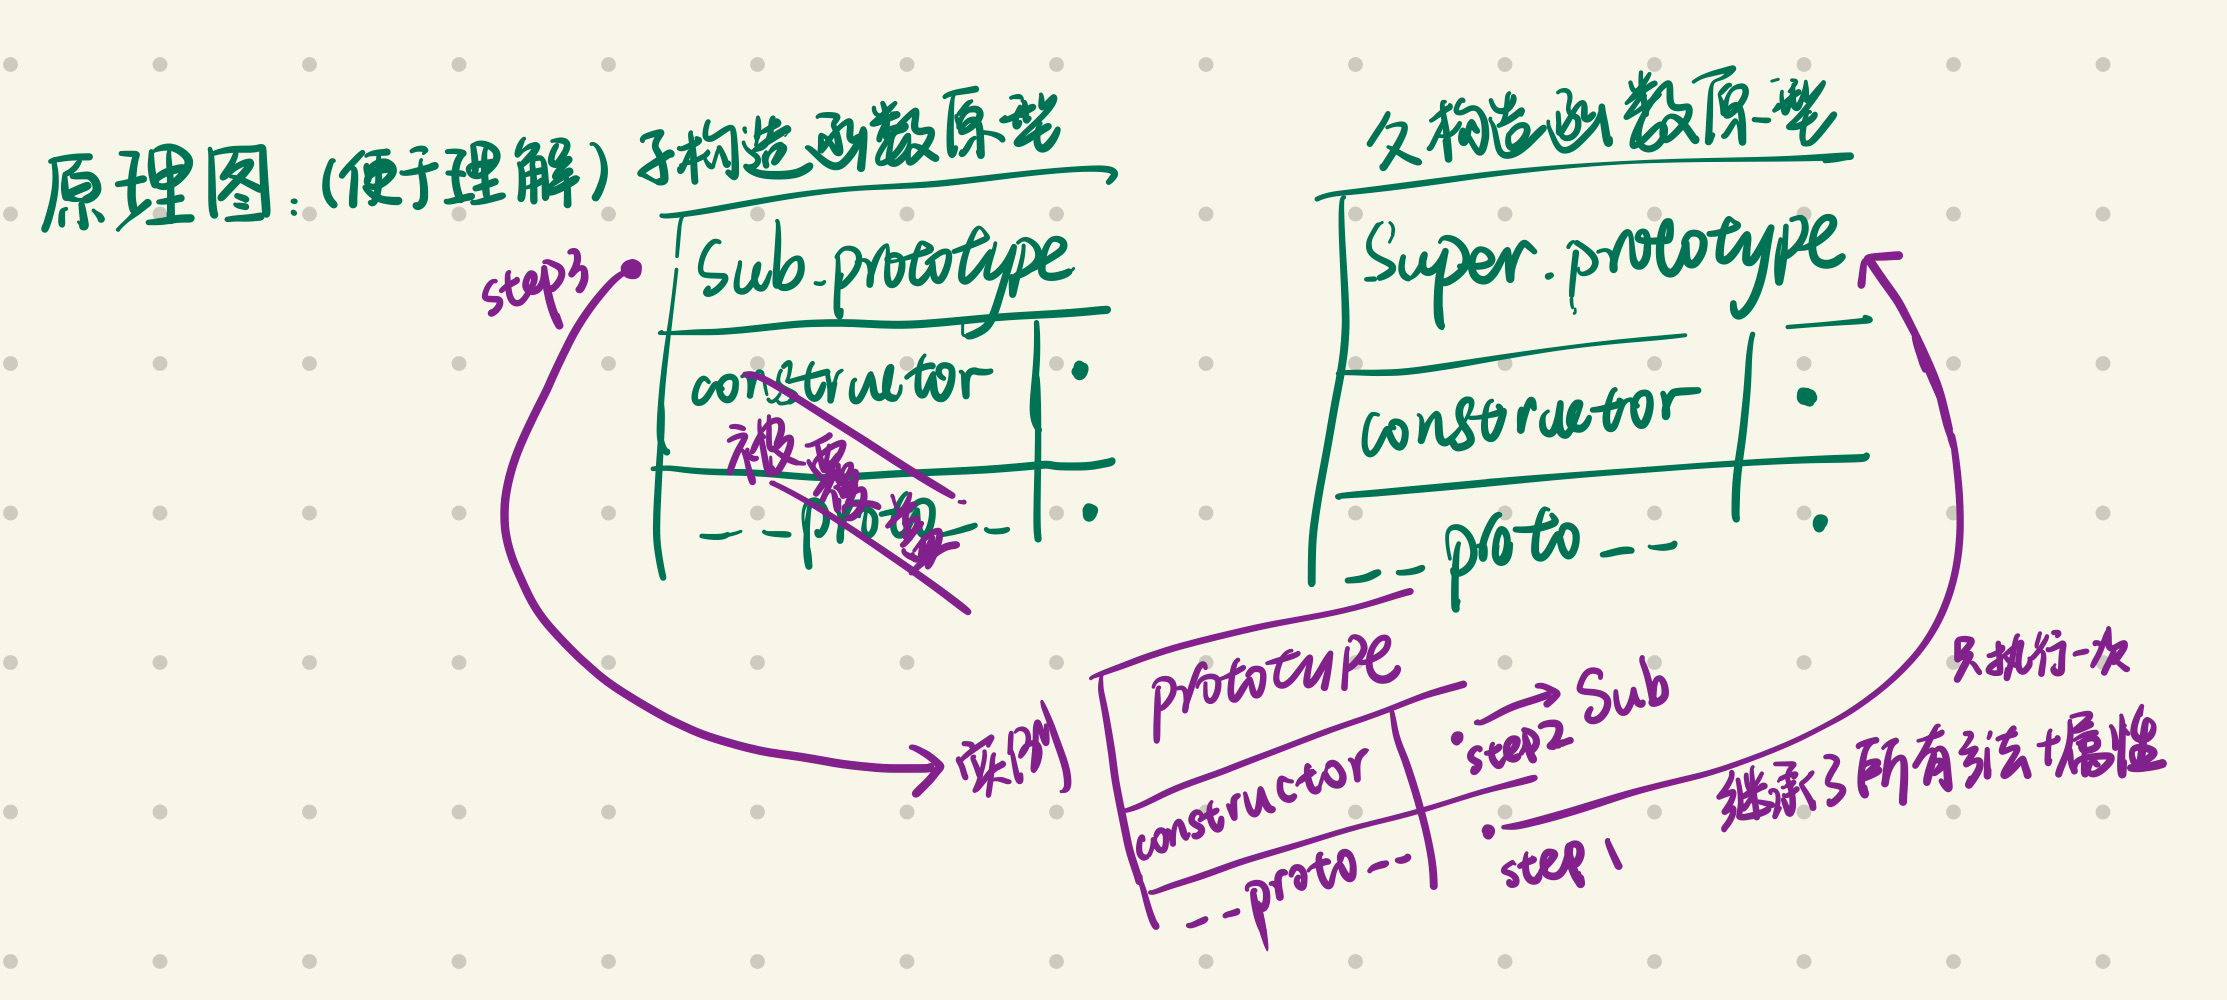 原理图:(便于理解)
子构造函数原型
Sub.prototype
constructor
__proto__
被覆盖
step3
父构造函数原型
Super.prototype
constructor
__proto__
实例
prototype
constructor
__proto__
step2
Sub
step1
只执行一次
继承了所有方法+属性